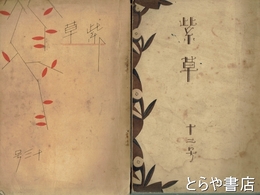 紫草
十三号
紫草
十二号
とらや書店